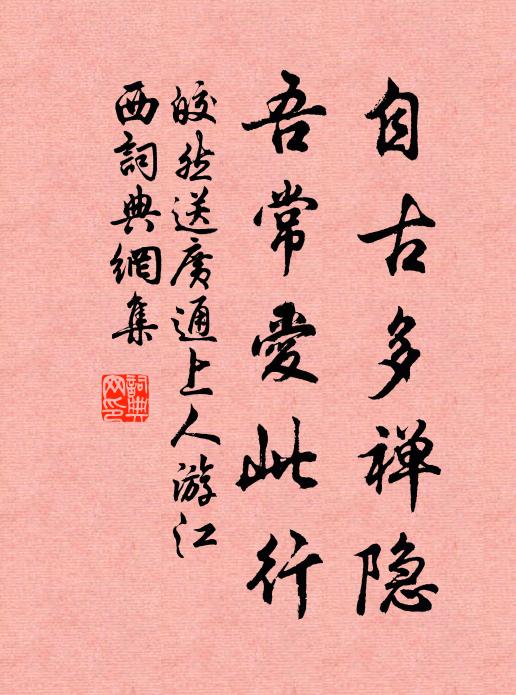 自古多禅隐
吾常愛此行
皎然送廣通上人游江
西詞典網集
詞典
网印